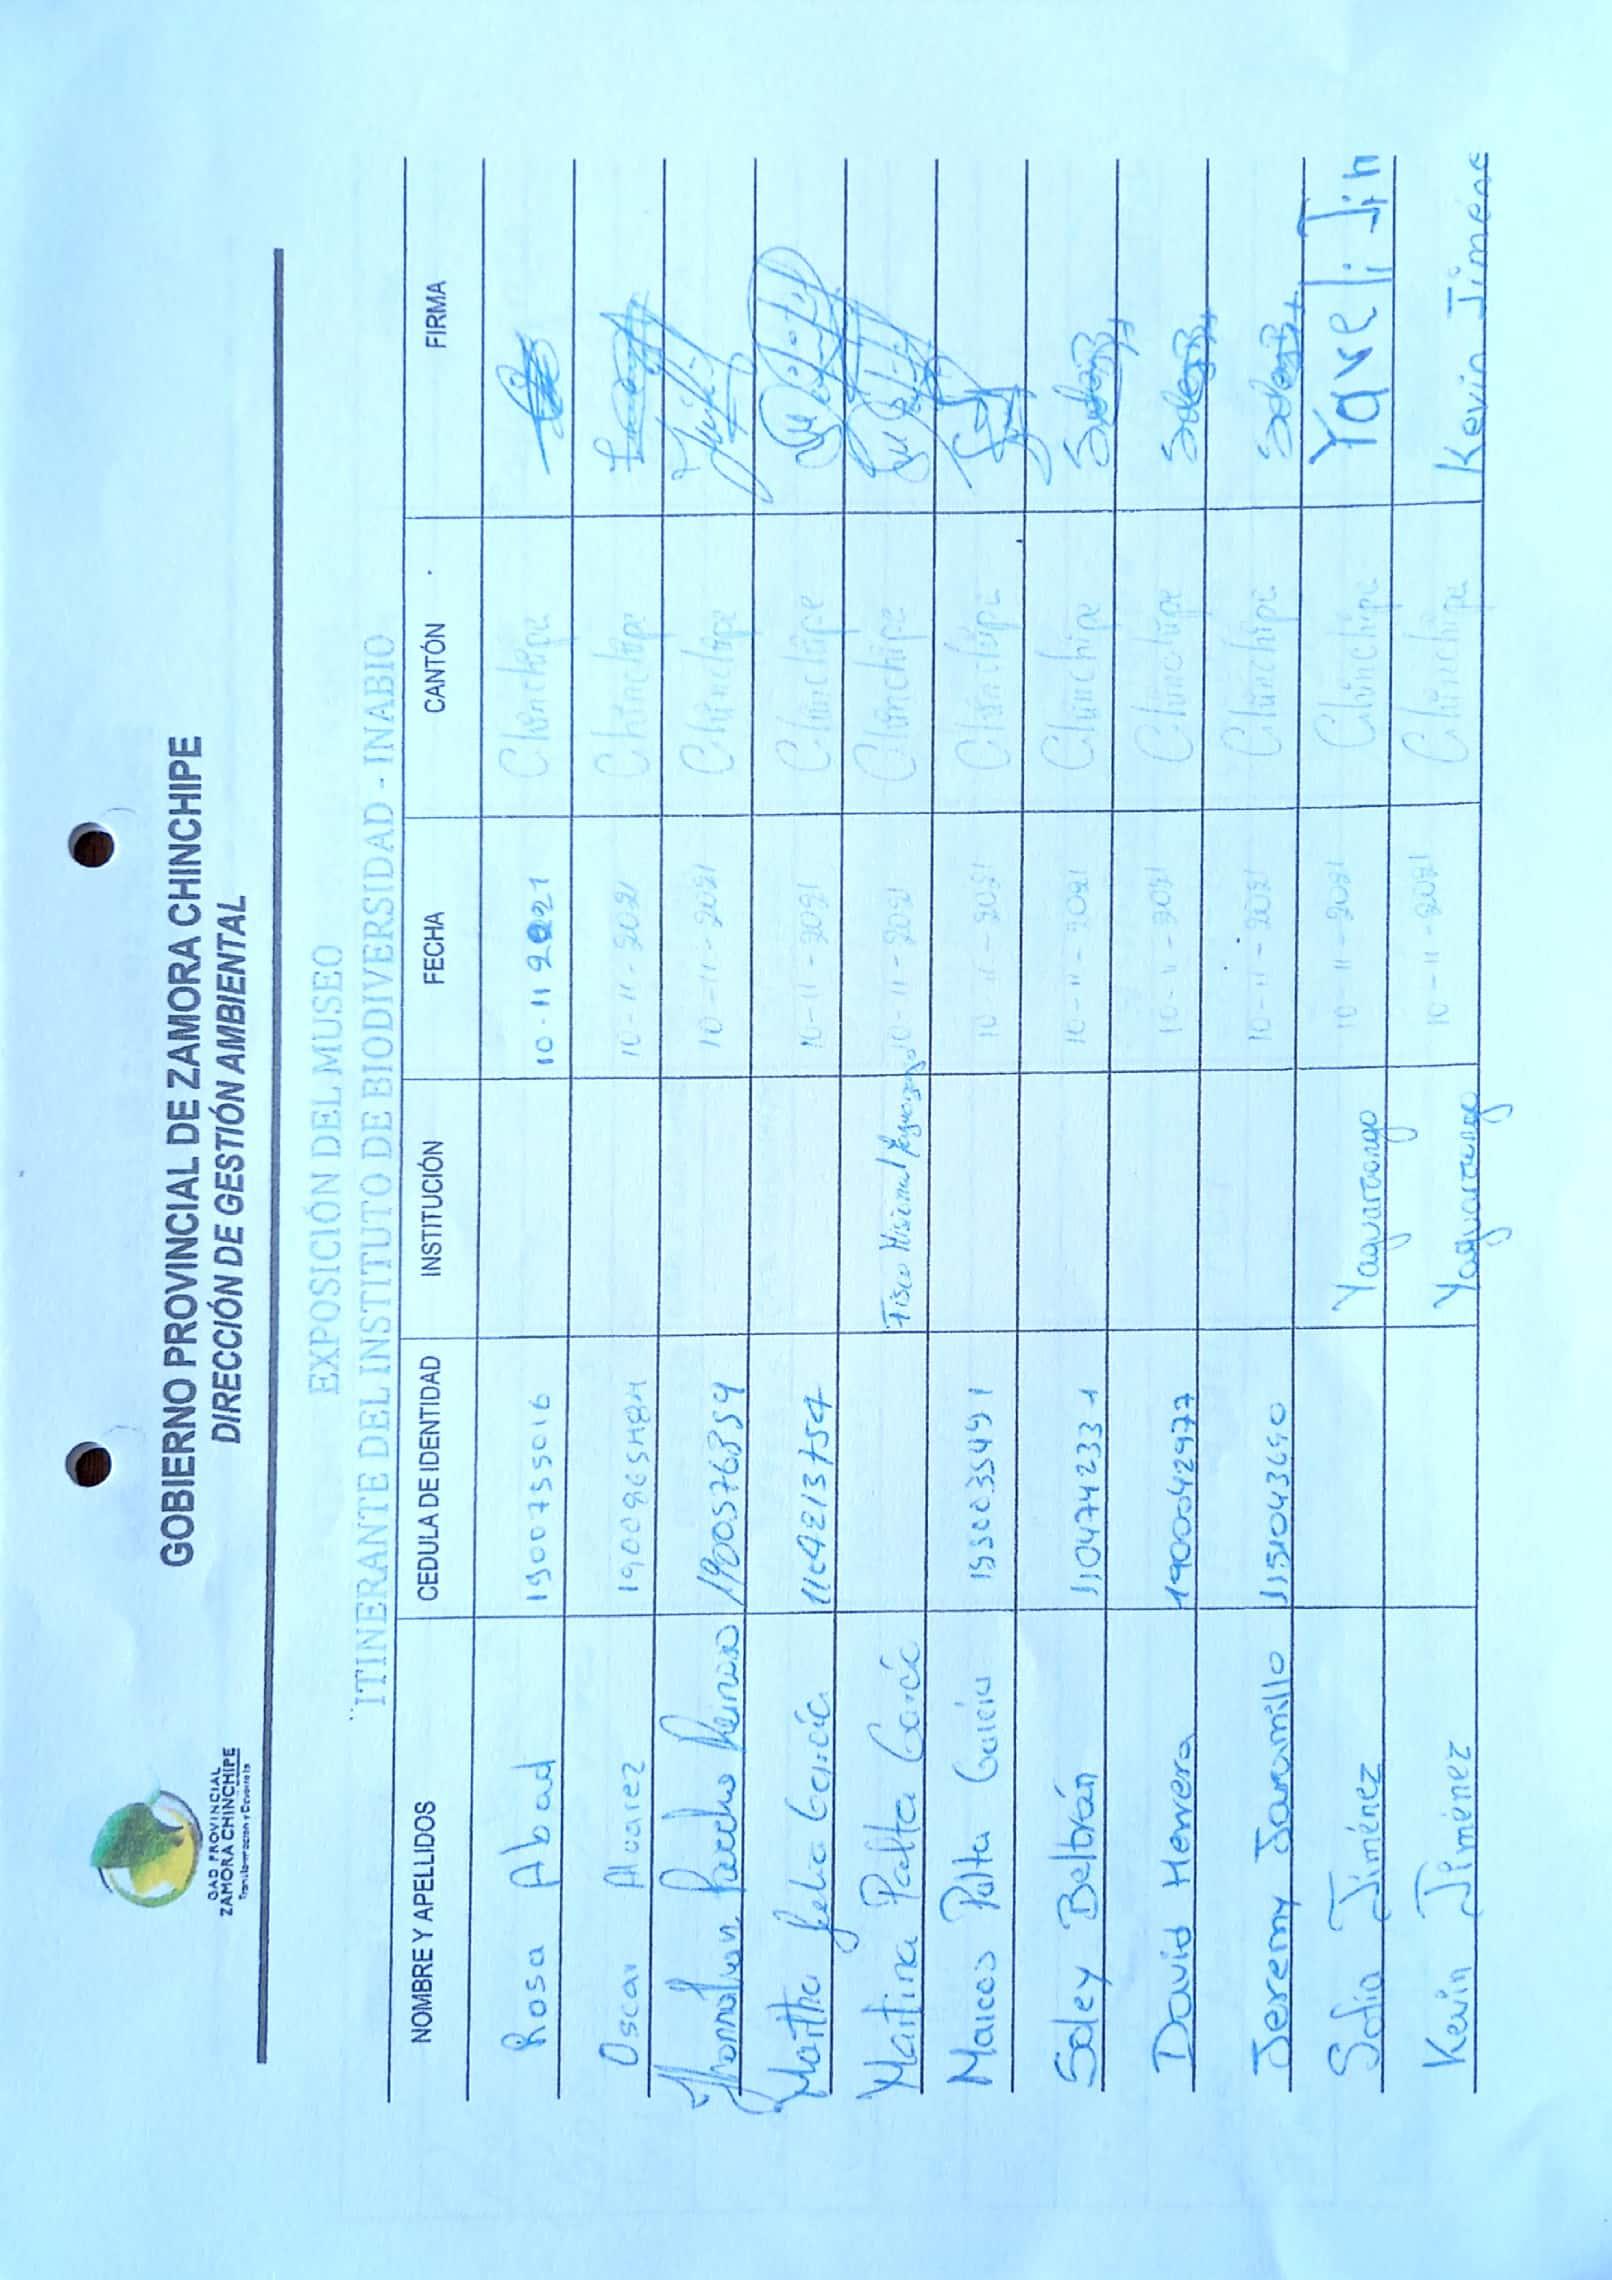 GAD PROVINCIAL
ZAMORA CHINCHIPE
GOBIERNO PROVINCIAL DE ZAMORA CHINCHIPE
DIRECCIÓN DE GESTIÓN AMBIENTAL
EXPOSICIÓN DEL MUSEO
¨ITINERANTE DEL INSTITUTO DE BIODIVERSIDAD - INABIO
NOMBRE Y APELLIDOS CEDULA DE IDENTIDAD INSTITUCIÓN FECHA CANTÓN FIRMA
Rosa Abad 1900755016 10-11 2021 Chinchipe
Oscar Alvarez 10-11-2021 Chinchipe
10-11-2021 Chinchipe
Martha García 10-11-2021 Chinchipe
Martina Palta García Fisco Misional 10-11-2021 Chinchipe
Marcos Palta García 10-11-2021 Chinchipe
Soley Beltrán 1104742331 10-11-2021 Chinchipe
David Herrera 1900042977 10-11-2021 Chinchipe
Jeremy Jaramillo 1151043690 10-11-2021 Chinchipe
Sofia Jiménez Yaguarzongo 10-11-2021 Chinchipe Yareli Jim
Kevin Jiménez Yaguarzongo 10-11-2021 Chinchipe Kevin Jimenez